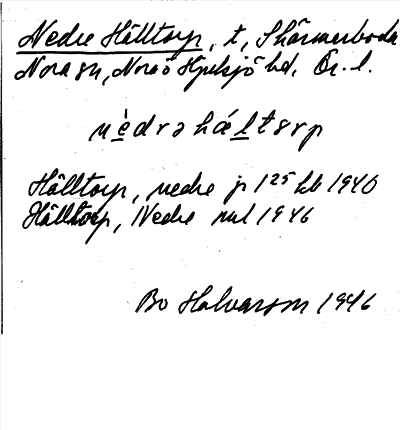 Nedre Hålltorp, t, Skärmarboda
Nora sn, Nora o Hjulsjö hd. Ör. l.
nèdrahá̱ltorp
Hålltorp, nedre jr 125 hb 1940
Hålltorp, Nedre mul 1946
Bo Halvarson 1946